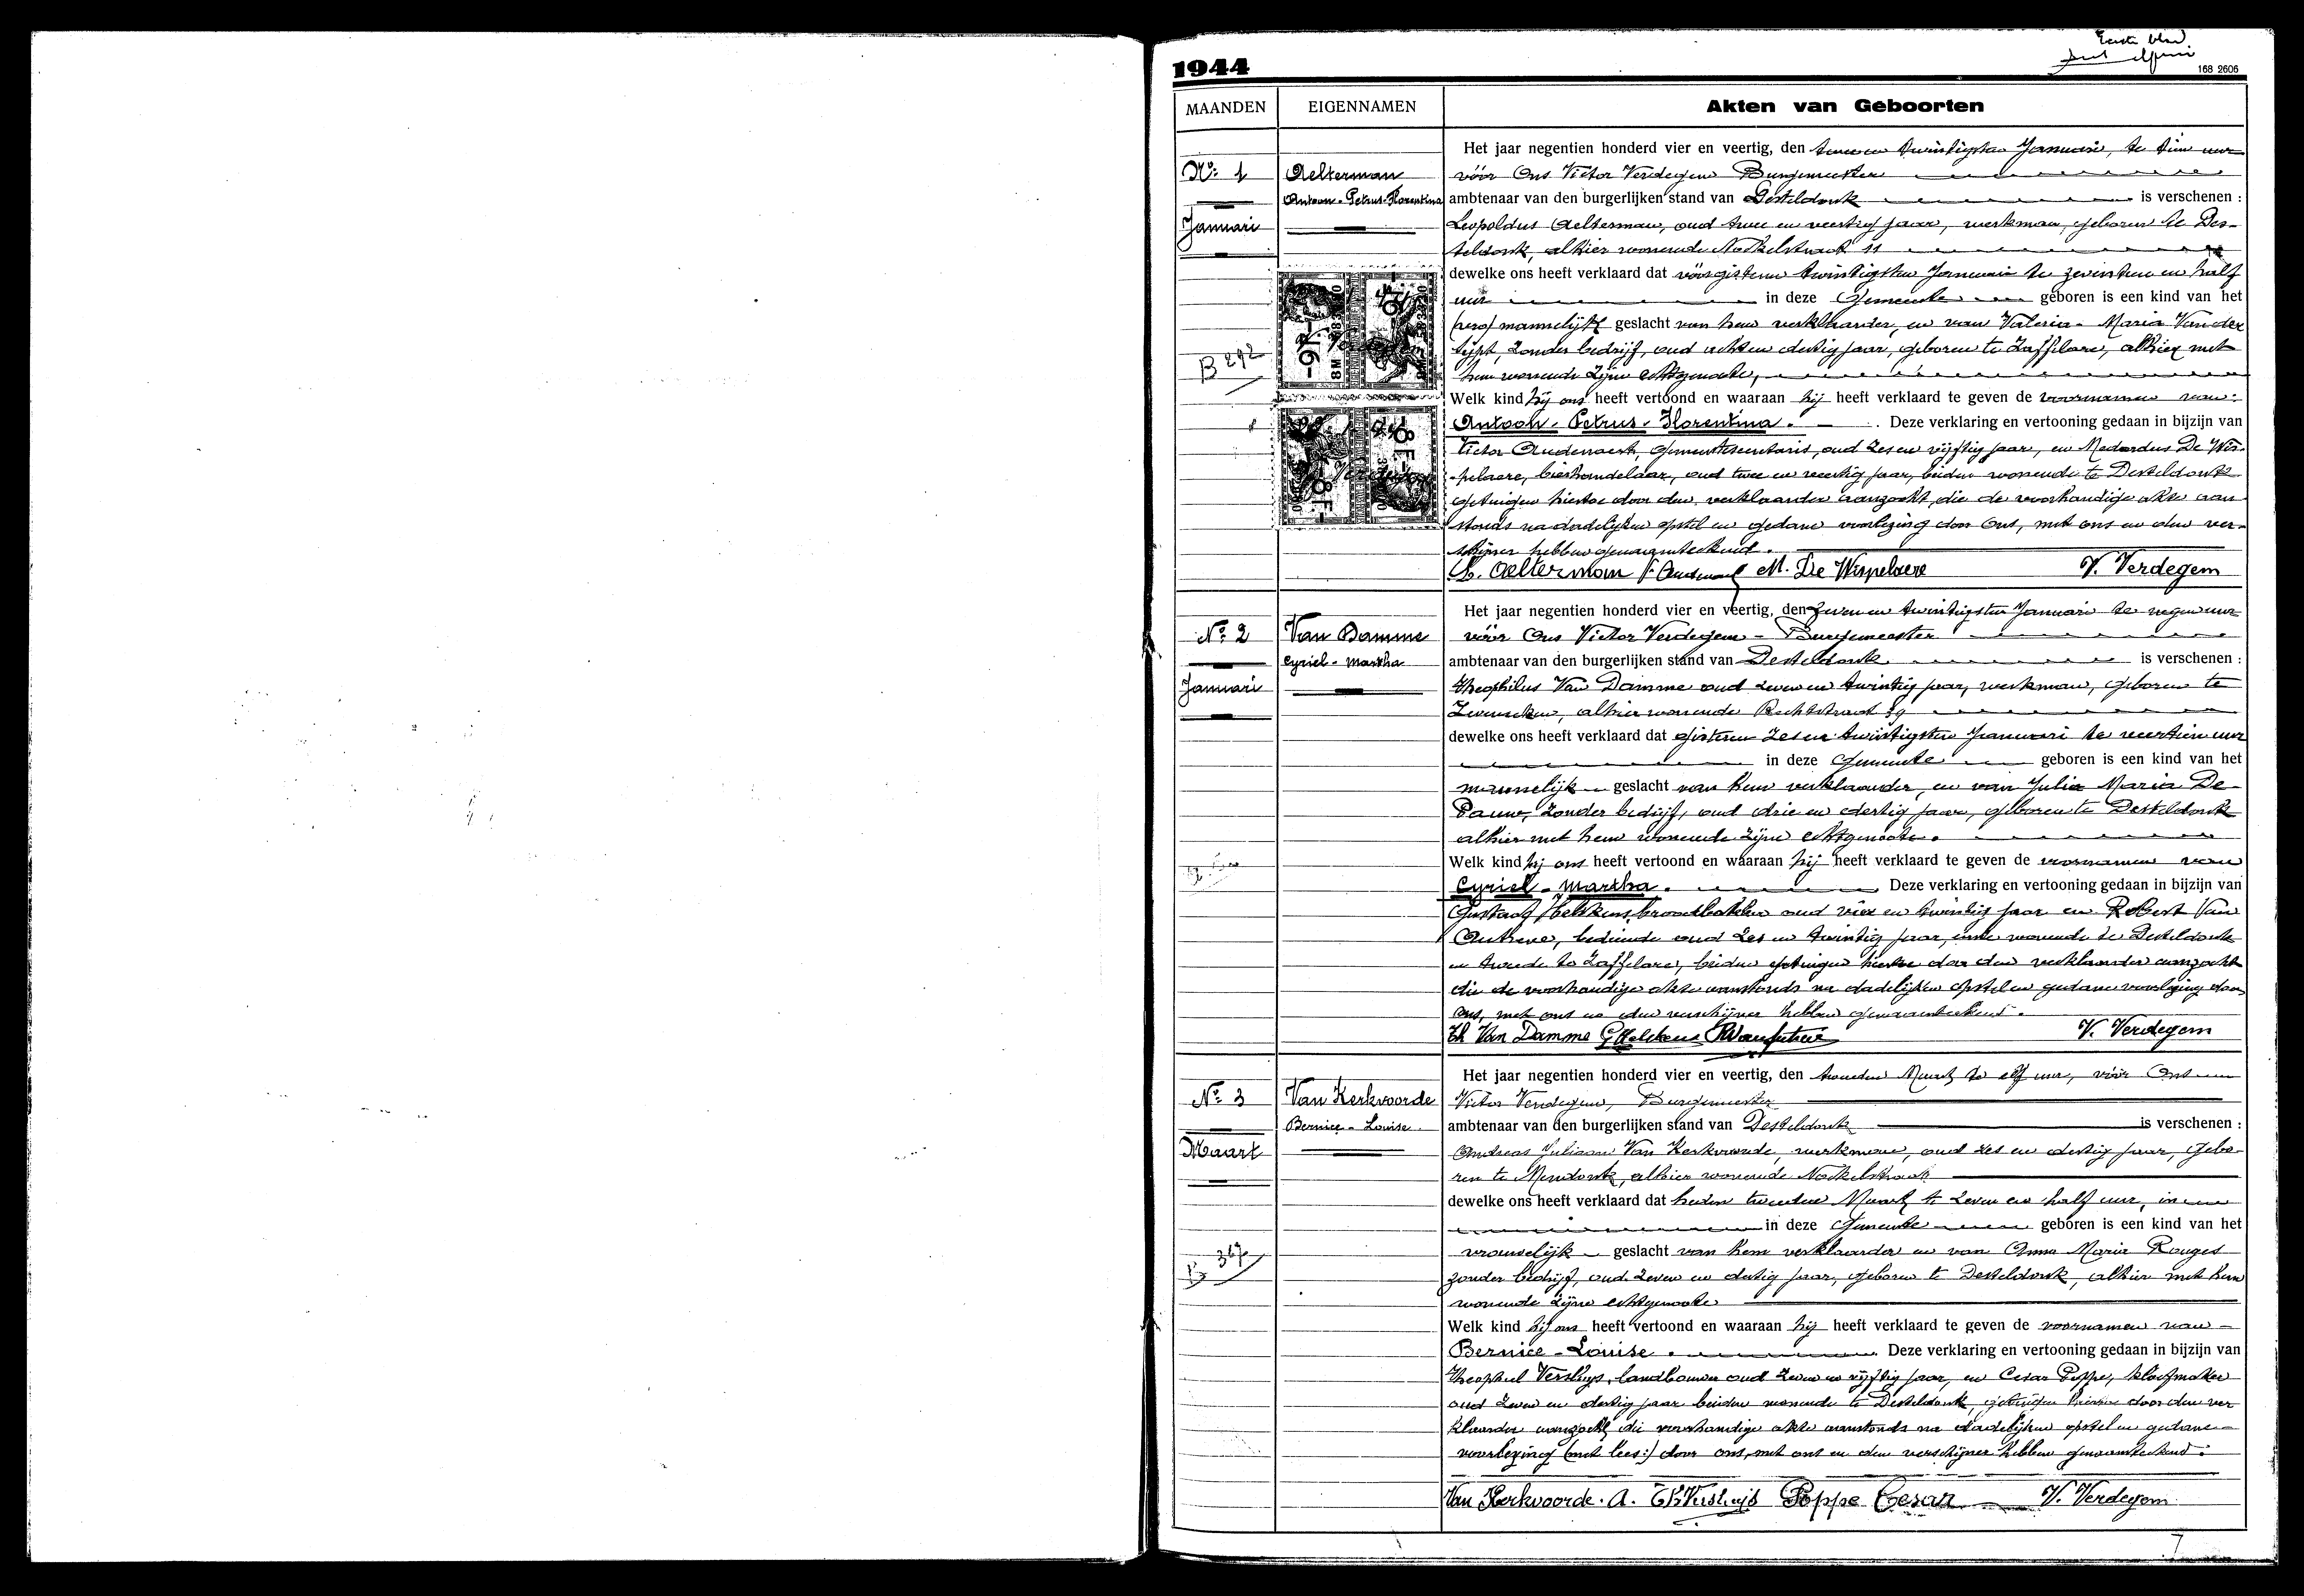 Eerste blad
1944
168 2606
MAANDEN EIGENNAMEN Akten van Geboorten
Nº 1
Januari
B 292
Aelterman
Antoon-Petrus-Florentina
Het jaar negentien honderd vier en veertig, den twee en twintigsten Januari, te tien uur
vóór Ons Victor Verdegem Burgemeester
ambtenaar van den burgerlijken stand van Desteldonk is verschenen :
Leopoldus Aelterman, oud twee en veertig jaar, werkman, geboren te Des-
teldonk, alhier wonende Nokkelstraat 11
dewelke ons heeft verklaard dat vóórgisteren twintigsten Januari te zeventien en half
uur in deze Gemeente geboren is een kind van het
mannelijk geslacht van hem verklaarder, en van Valeria-Maria Vander
zonder bedrijf, oud acht en dertig jaar, geboren te Zaffelare, alhier met
hem wonende zijne echtgenoote,
Welk kind hij ons heeft vertoond en waaraan hij heeft verklaard te geven de voornamen van:
Antoon-Petrus-Florentina. Deze verklaring en vertooning gedaan in bijzijn van
Victor Audenaert, Gemeentesecretaris, oud zes en vijftig jaar, en Medardus De Wis-
pelaere, bierhandelaar, oud twee en veertig jaar, beiden wonende te Desteldonk
getuigen hiertoe door den verklaarder aanzocht, die de voorhandige akte aan-
stonds na dadelijken opstel en gedane voorlezing door Ons, met ons en den ver-
schijner hebben genaamteekend.
L. Aelterman M. De Wispelaere V. Verdegem
Nº 2
Januari
Van Damme
Cyriel-Martha
Het jaar negentien honderd vier en veertig, den zeven en twintigsten Januari te negen uur
vóór Ons Victor Verdegem - Burgemeester
ambtenaar van den burgerlijken stand van Desteldonk is verschenen :
Theophilus Van Damme oud zeven en twintig jaar, werkman, geboren te
Zeveneken, alhier wonende Rechtstraat 39
dewelke ons heeft verklaard dat gisteren zes en twintigsten Januari te veertien uur
in deze Gemeente geboren is een kind van het
mannelijk geslacht van hem verklaarder, en van Julia Maria De
Pauw, zonder bedrijf, oud drie en dertig jaar, geboren te Desteldonk
alhier met hem wonende zijne echtgenoote.
Welk kind hij ons heeft vertoond en waaraan hij heeft verklaard te geven de voornamen van
Cyriel-Martha. Deze verklaring en vertooning gedaan in bijzijn van
Gustaaf broodbakker oud vier en twintig jaar en Robert Van
bediende oud zes en twintig jaar, eerste wonende te Desteldonk
en tweede te Zaffelare, beiden getuigen hiertoe door den verklaarder aanzocht
die de voorhandige akte aanstonds na dadelijken opstel en gedane voorlezing door
ons, met ons en den verschijner hebben genaamteekend.
Th Van Damme V. Verdegem
Nº 3
Maart
B 367
Van Kerkvoorde
Bernice-Louise
Het jaar negentien honderd vier en veertig, den tweeden Maart te elf uur, vóór Ons
Victor Verdegem, Burgemeester
ambtenaar van den burgerlijken stand van Desteldonk is verschenen :
Andreas Juliaan Van Kerkvoorde, werkman, oud zes en dertig jaar, gebo-
ren te Mendonk, alhier wonende Nokkelstraat
dewelke ons heeft verklaard dat heden tweeden Maart te zeven en half uur, in
in deze Gemeente geboren is een kind van het
vrouwelijk geslacht van hem verklaarder en van Anna Maria Rouges
zonder bedrijf, oud zeven en dertig jaar, geboren te Desteldonk, alhier met hem
wonende zijne echtgenoote
Welk kind hij ons heeft vertoond en waaraan hij heeft verklaard te geven de voornamen van
Bernice-Louise. Deze verklaring en vertooning gedaan in bijzijn van
Theophiel Versluys, landbouwer oud zeven en vijftig jaar, en Cesar Poppe, kloefmaker
oud zeven en dertig jaar beiden wonende te Desteldonk, getuigen hiertoe door den ver
klaarder aanzocht, die voorhandige akte aanstonds na dadelijken opstel en gedane
voorlezing (met lees:) door ons, met ons en den verschijner hebben genaamteekend.
Van Kerkvoorde. A. Th Versluys Poppe Cesar V. Verdegem